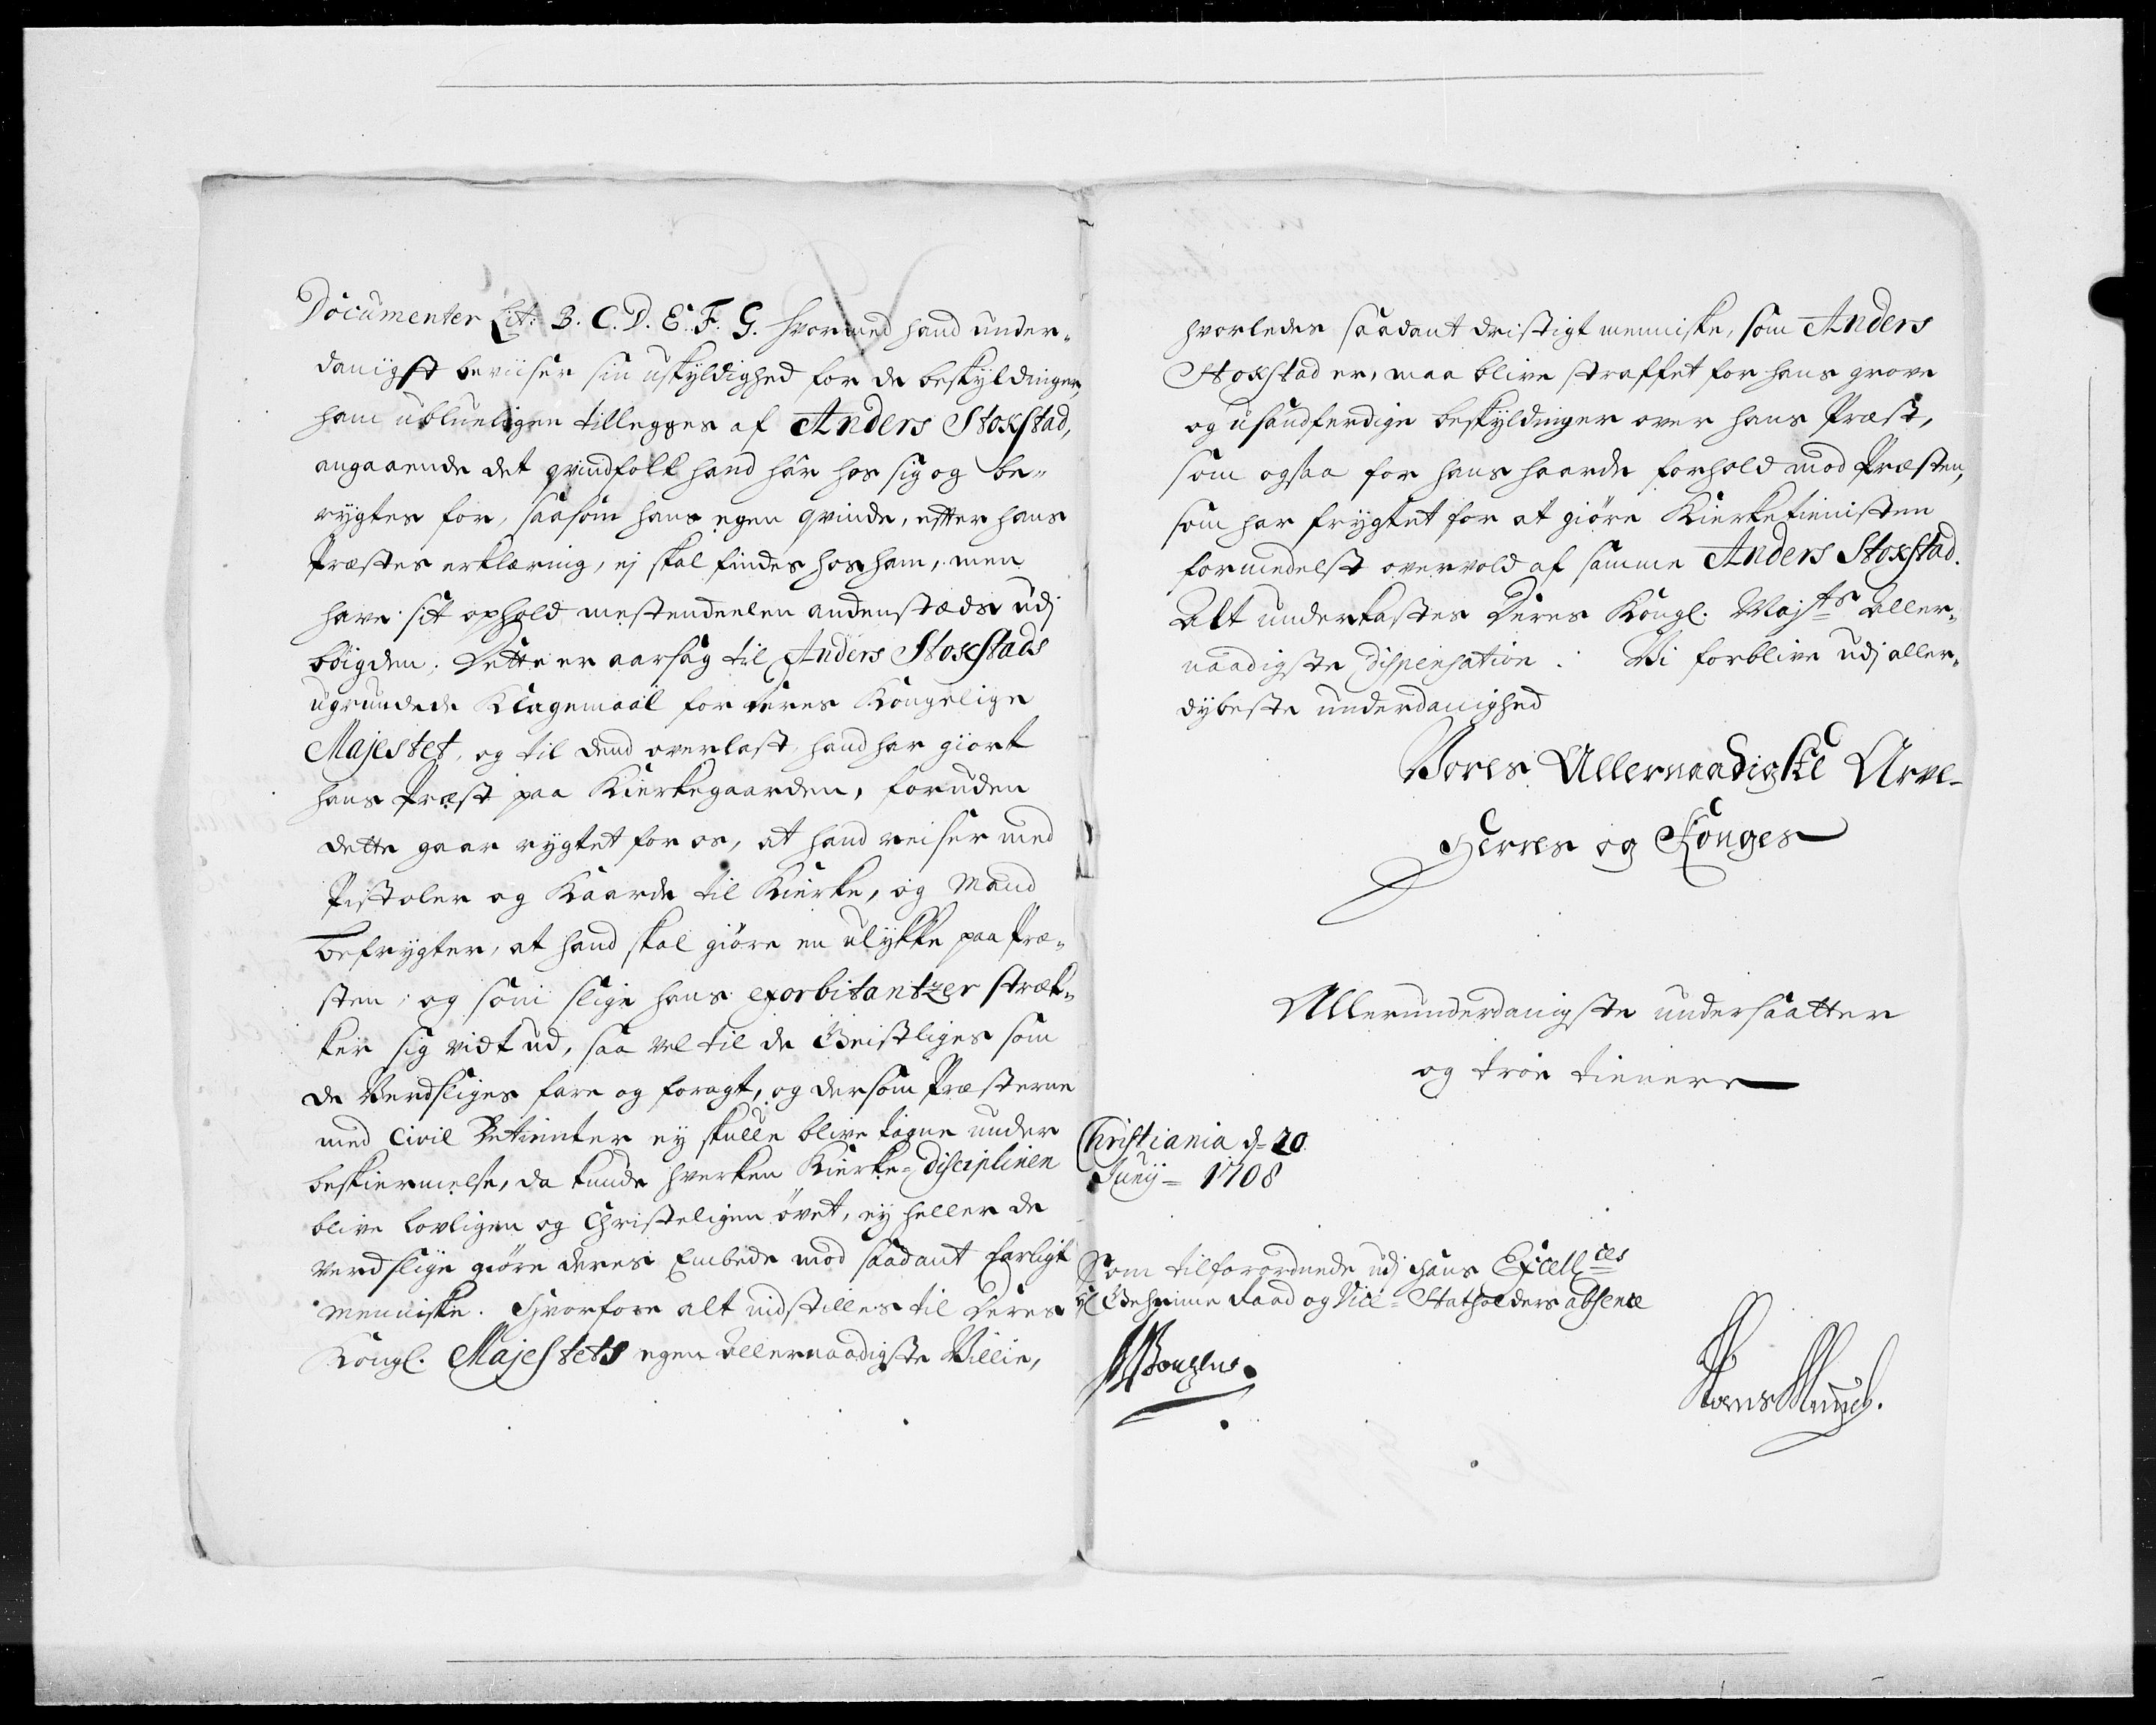 Documenter Lit: B. C. D. E. F. G. hvormed hand under-
danigst beviiser sin uskyldighed for de beskyldinger,
ham ublueligen tillegges af Anders Stokstad,
angaaende det qvindfolk hand har hos sig og be-
rygtes for, saasom hans egen qvinde, efter hans
Præstes erklæring, ej skal findes hos ham, men
have sit ophold mestendeelen andenstæds udj
böigden; Dette er aarsag til Anders Stokstads
ugrundede Klagemaal for deres Kongelige
Majestet, og til dend overlast, hand har giort
hans Præst paa Kierkegaarden, foruden
dette gaar rygtet for os, at hand reiser med
Pistoler og Kaarde til Kierke, og Mand
befrygter, at hand skal giöre en ulykke paa Præ-
sten; og som slige hans exorbitantzer stræk-
ker sig vidt ud, saa vel til de Geistliges som
de Verdsliges fare og foragt, og dersom Præsterne
med Civil Betienter ey skulle blive tagne under
beskiermelse, da kunde hverken Kierke-Disciplinen
blive lovligen og Christeligen övet, ey heller de
verdslige giöre deres Embede mod saadant farligt
menniske. Hvorfore alt indstilles til Deres
Kongl. Majestets egen allernaadigste Villie,
hvorledes saadant dristigt menniske, som Anders
Stokstad er, maa blive straffet for hans grove
og usandferdige beskyldinger over hans Præst,
som ogsaa for hans haarde forhold mod Præsten,
som har frygtet for at giöre Kierketienisten
formedelst overvold af samme Anders Stokstad.
Alt underkastes Deres Kongl. Majts aller-
naadigste Dispensation. Vi forblive udj aller-
dybeste underdanighed
Vores Allernaadigste Arve-
Herres og Konges
Allerunderdanigste undersaatter
og troe tienere
Christiania d= 20
Junij= 1708
Som tilforordnede udj hans Excellces
Hl Geheime Raad og Vice-Statholders absence
Hans Munch.